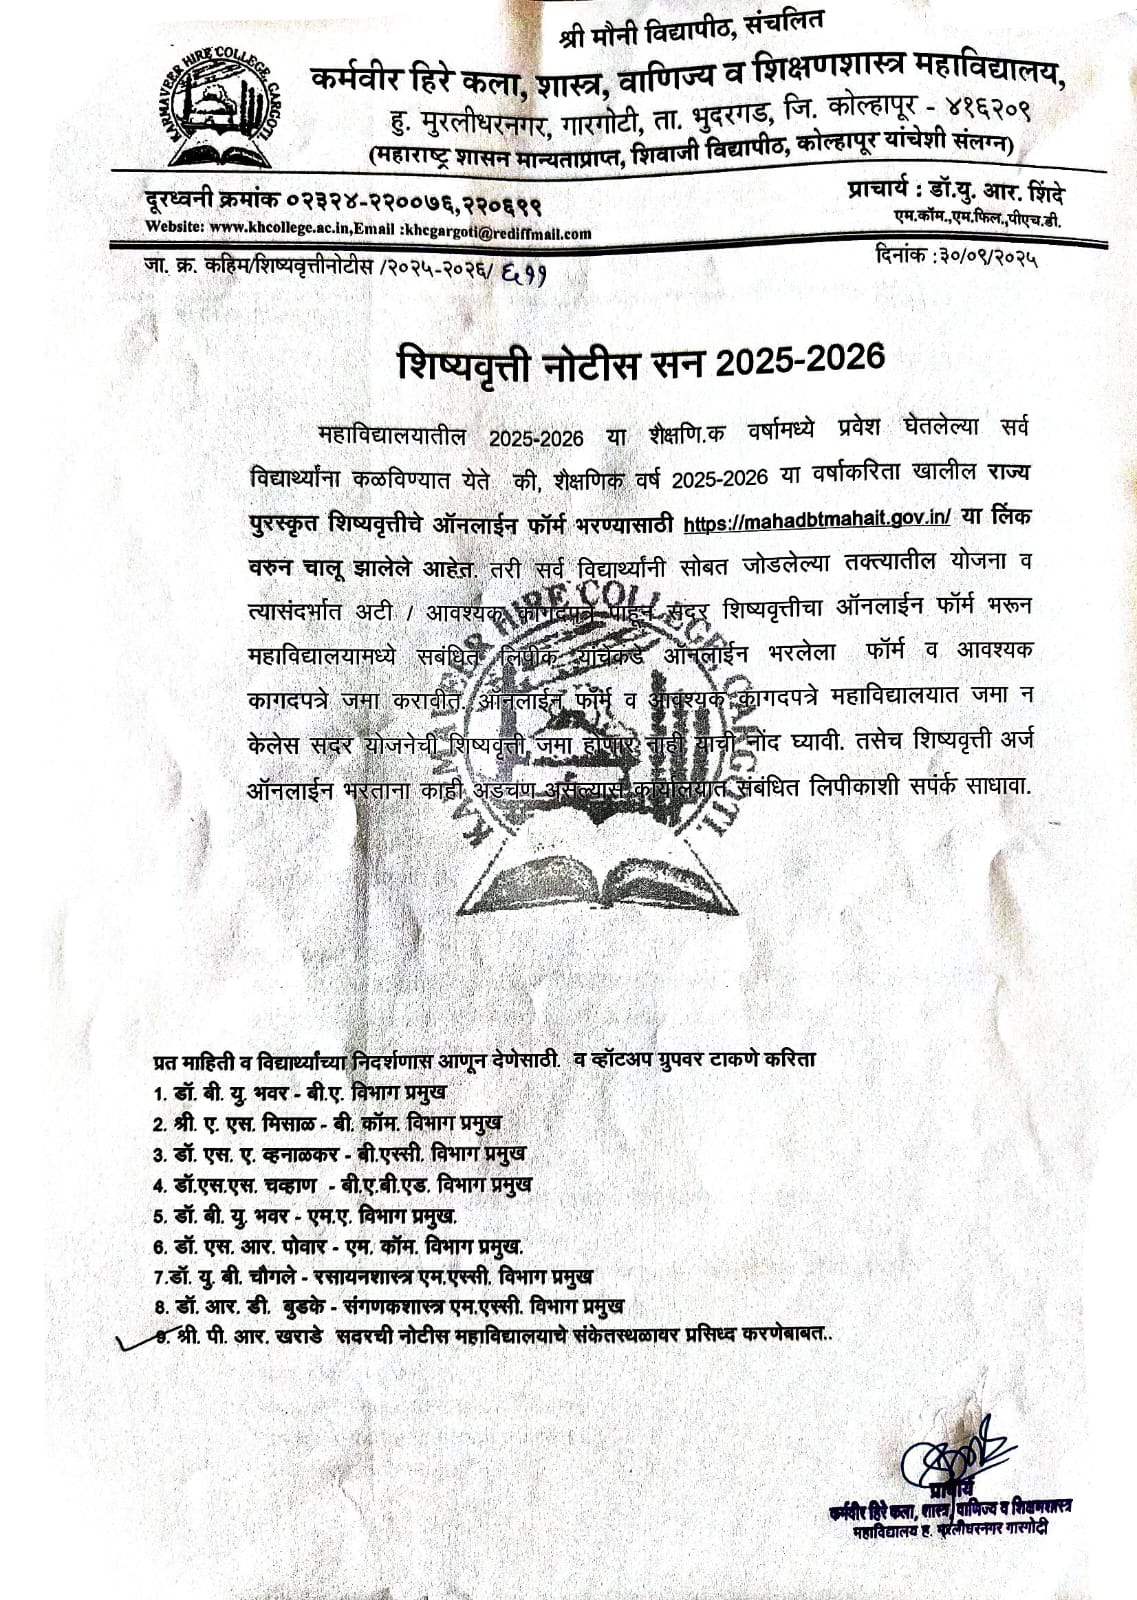 श्री मौनी विद्यापीठ, संचलित
KARMAVEER HIRE COLLEGE, GARGOTI.
कर्मवीर हिरे कला, शास्त्र, वाणिज्य व शिक्षणशास्त्र महाविद्यालय,
हु. मुरलीधरनगर, गारगोटी, ता. भुदरगड, जि. कोल्हापूर - ४१६२०९
(महाराष्ट्र शासन मान्यताप्राप्त, शिवाजी विद्यापीठ, कोल्हापूर यांचेशी संलग्न)
दूरध्वनी क्रमांक ०२३२४-२२००७६,२२०६९९
प्राचार्य : डॉ.यु. आर. शिंदे
एम.कॉम.,एम.फिल.,पीएच.डी.
Website: www.khcollege.ac.in,Email :khcgargoti@rediffmail.com
जा. क्र. कहिम/शिष्यवृत्तीनोटीस /२०२५-२०२६/ ६११
दिनांक :३०/०९/२०२५
शिष्यवृत्ती नोटीस सन 2025-2026
महाविद्यालयातील 2025-2026 या शैक्षणि.क वर्षामध्ये प्रवेश घेतलेल्या सर्व
विद्यार्थ्यांना कळविण्यात येते की, शैक्षणिक वर्ष 2025-2026 या वर्षाकरिता खालील राज्य
पुरस्कृत शिष्यवृत्तीचे ऑनलाईन फॉर्म भरण्यासाठी https://mahadbtmahait.gov.in/ या लिंक
वरुन चालू झालेले आहेत. तरी सर्व विद्यार्थ्यांनी सोबत जोडलेल्या तक्त्यातील योजना व
त्यासंदर्भात अटी / आवश्यक कागदपत्रे पाहून सदर शिष्यवृत्तीचा ऑनलाईन फॉर्म भरून
महाविद्यालयामध्ये सबंधित लिपीक यांचेकडे ऑनलाईन भरलेला फॉर्म व आवश्यक
कागदपत्रे जमा करावीत. ऑनलाईन फॉर्म व आवश्यक कागदपत्रे महाविद्यालयात जमा न
केलेस सदर योजनेची शिष्यवृत्ती जमा होणार नाही याची नोंद घ्यावी. तसेच शिष्यवृत्ती अर्ज
ऑनलाईन भरताना काही अडचण असल्यास कार्यालयात संबंधित लिपीकाशी सपंर्क साधावा.
KARMAVEER HIRE COLLEGE, GARGOTI.
प्रत माहिती व विद्यार्थ्यांच्या निदर्शणास आणून देणेसाठी. व व्हॉटअप ग्रुपवर टाकणे करिता
1. डॉ. बी. यु. भवर - बी.ए. विभाग प्रमुख
2. श्री. ए. एस. मिसाळ - बी. कॉम. विभाग प्रमुख
3. डॉ. एस. ए. व्हनाळकर - बी.एस्सी. विभाग प्रमुख
4. डॉ.एस.एस. चव्हाण - बी.ए.बी.एड. विभाग प्रमुख
5. डॉ. बी. यु. भवर - एम.ए. विभाग प्रमुख.
6. डॉ. एस. आर. पोवार - एम. कॉम. विभाग प्रमुख.
7.डॉ. यु. बी. चौगले - रसायनशास्त्र एम.एस्सी. विभाग प्रमुख
8. डॉ. आर. डी. बुडके - संगणकशास्त्र एम.एस्सी. विभाग प्रमुख
9. श्री. पी. आर. खराडे सदरची नोटीस महाविद्यालयाचे संकेतस्थळावर प्रसिध्द करणेबाबत..
प्राचार्य
कर्मवीर हिरे कला, शास्त्र, वाणिज्य व शिक्षणशास्त्र
महाविद्यालय हु. मुरलीधरनगर गारगोटी